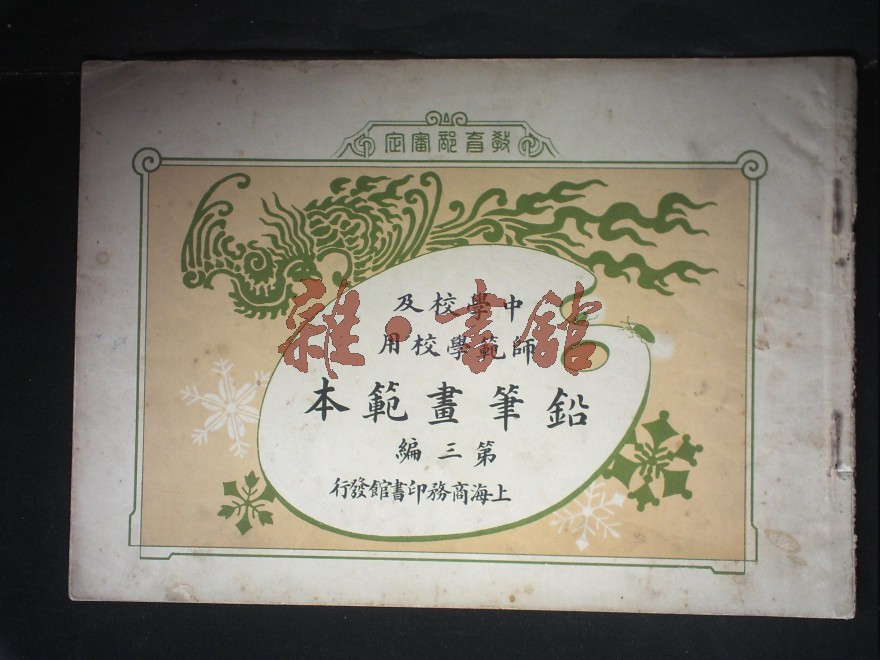 教育部審定
中學校及
師範學校用
鉛筆畫範本
第三編
上海商務印書館發行
雜·書館